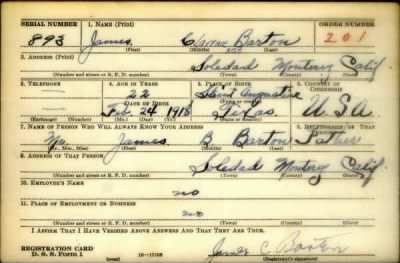 SERIAL NUMBER 1. NAME (Print) ORDER NUMBER
893 James Barton 201
(First) (Middle) (Last)
2. ADDRESS (Print)
Soledad Monterey Calif
(Number and street or R. F. D. number) (Town) (County) (State)
3. TELEPHONE 4. AGE IN YEARS 5. PLACE OF BIRTH 6. COUNTRY OF CITIZENSHIP
22 Augustine
DATE OF BIRTH (Town or county)
Feb. 24 1918 Texas U.S.A
(Exchange) (Number) (Mo.) (Day) (Yr.) (State or country)
7. NAME OF PERSON WHO WILL ALWAYS KNOW YOUR ADDRESS 8. RELATIONSHIP OF THAT PERSON
Mr. James B Barton Father
(Mr., Mrs., Miss) (First) (Middle) (Last)
9. ADDRESS OF THAT PERSON
Soledad Monterey Calif
(Number and street or R. F. D. number) (Town) (County) (State)
10. EMPLOYER'S NAME
no
11. PLACE OF EMPLOYMENT OR BUSINESS
no
(Number and street or R. F. D. number) (Town) (County) (State)
I AFFIRM THAT I HAVE VERIFIED ABOVE ANSWERS AND THAT THEY ARE TRUE.
REGISTRATION CARD
D. S. S. Form 1 16-17105 James C Barton
(Registrant's signature)